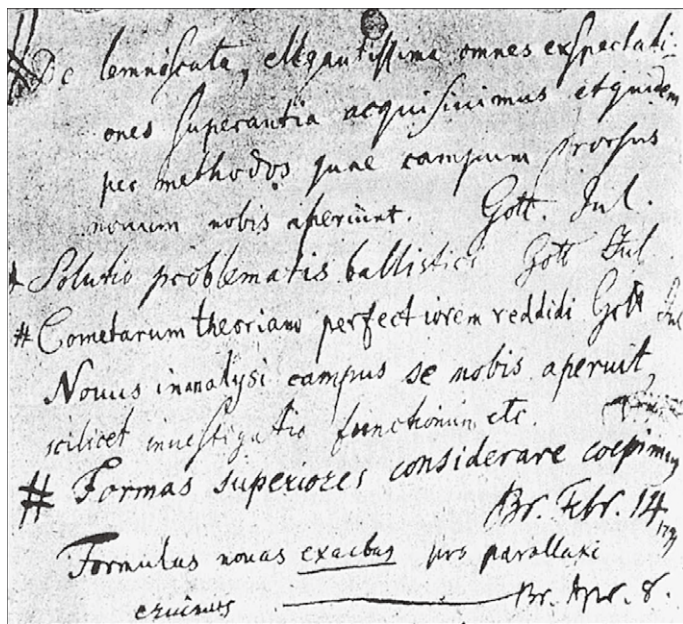 # De lemniscata, elegantissima omnes exspectati-
ones superantia acquisivimus et quidem
per methodos quae campum prorsus
novum nobis aperiunt. Gott. Jul.
Solutio problematis ballistici Gott Jul
# Cometarum theoriam perfectiorem reddidi Gott Jul
Novus in analysi campus se nobis aperuit,
scilicet investigatio functionum etc.
# Formas superiores considerare coepimus
Br. Febr. 14
Formulas novas exactas pro parallaxi
eruimus Br. Apr. 8.